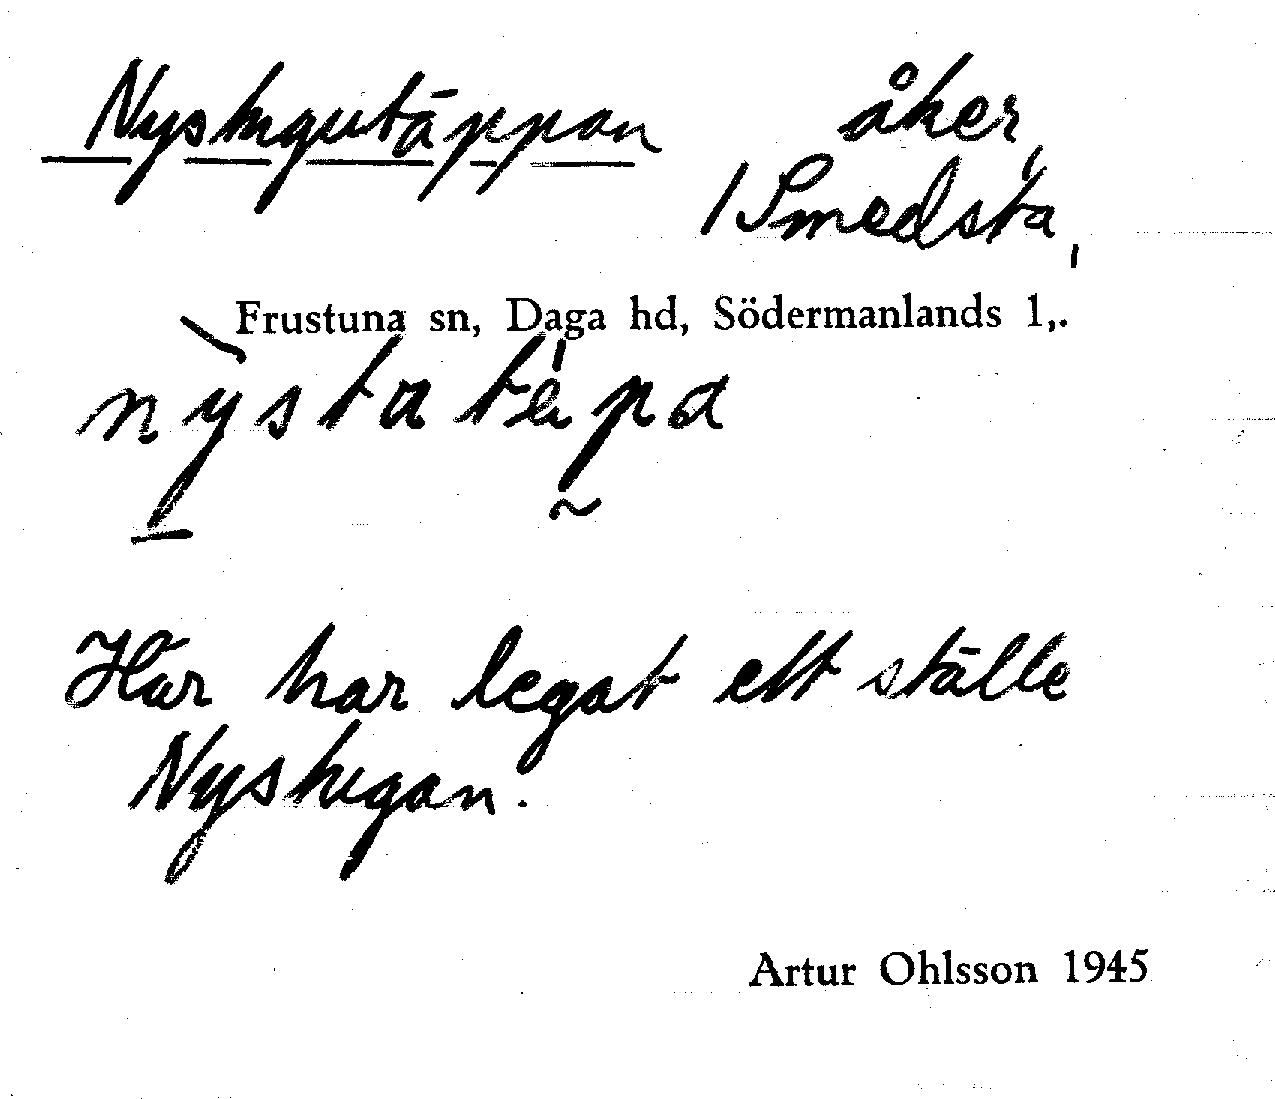 Nystugutäppan åker,
/Smedsta,
Frustuna sn, Daga hd, Södermanlands l,.
nystatäpa
Här har legat ett ställe
Nystugan.
Artur Ohlsson 1945